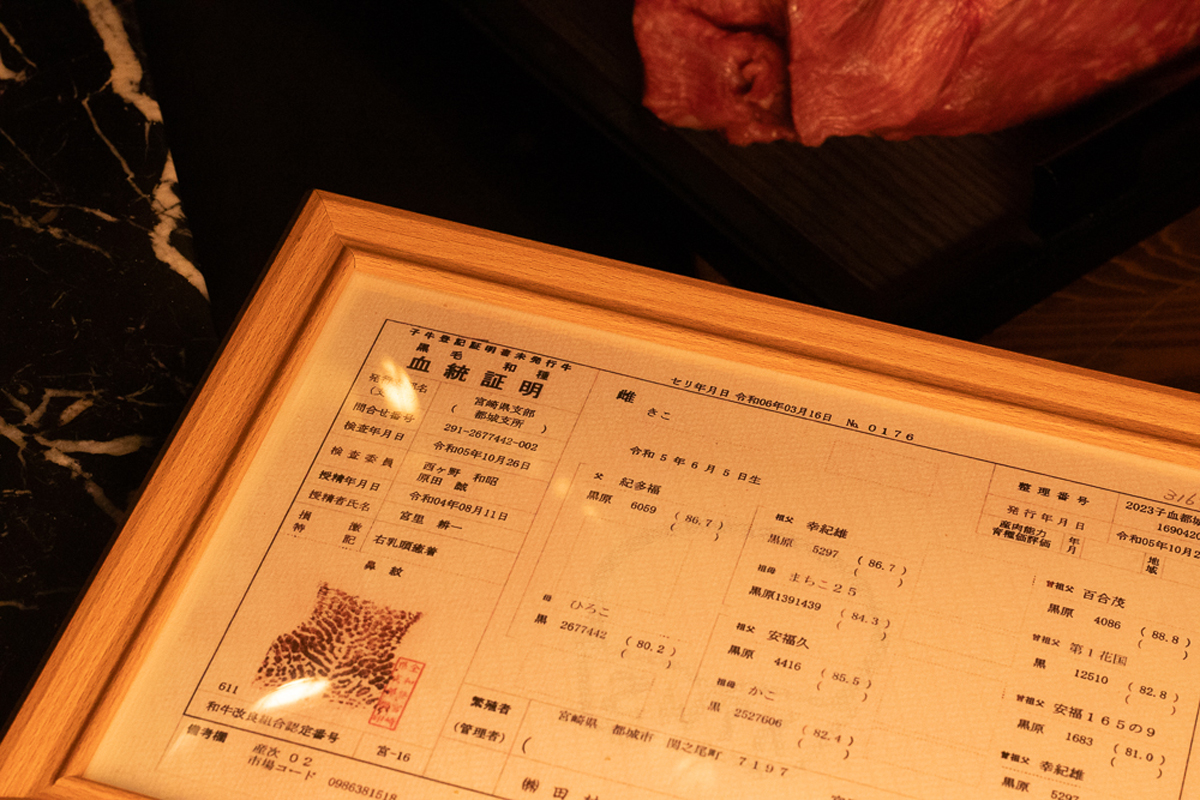 子牛登記証明書未発行牛
黒毛和種
血統証明
宮崎県支部
( 都城支所 )
問合せ番号 291-2677442-002
検査年月日 令和05年10月26日
検査委員 西ヶ野 和昭
原田 誠
授精年月日 令和04年08月11日
授精者氏名 宮里 耕一
損徴
特記 右乳頭癒着
鼻紋
611
和牛改良組合認定番号 宮-16
備考欄 産次 02
市場コード 0986381518
セリ年月日 令和06年03月16日 № 0176
雌 きこ
令和 5年 6月 5日生
父 紀多福
黒原 6059 (86.7)
( )
母 ひろこ
黒 2677442 (80.2)
( )
祖父 幸紀雄
黒原 5297 (86.7)
( )
祖母 まちこ25
黒原1391439 (84.3)
( )
祖父 安福久
黒原 4416 (85.5)
( )
祖母 かこ
黒 2527606 (82.4)
( )
316
整理番号 2023子血都城
169042
発行年月日 令和05年10月2
産肉能力
育種価評価 年月 地域
曾祖父 百合茂
黒原 4086 (88.8)
( )
曾祖父 第1花国
黒 12510 (82.8)
( )
曾祖父 安福165の9
黒原 1683 (81.0)
( )
曾祖父 幸紀雄
黒原 5297
繁殖者
(管理者)
宮崎県 都城市 関之尾町 7197
(
㈱ 田